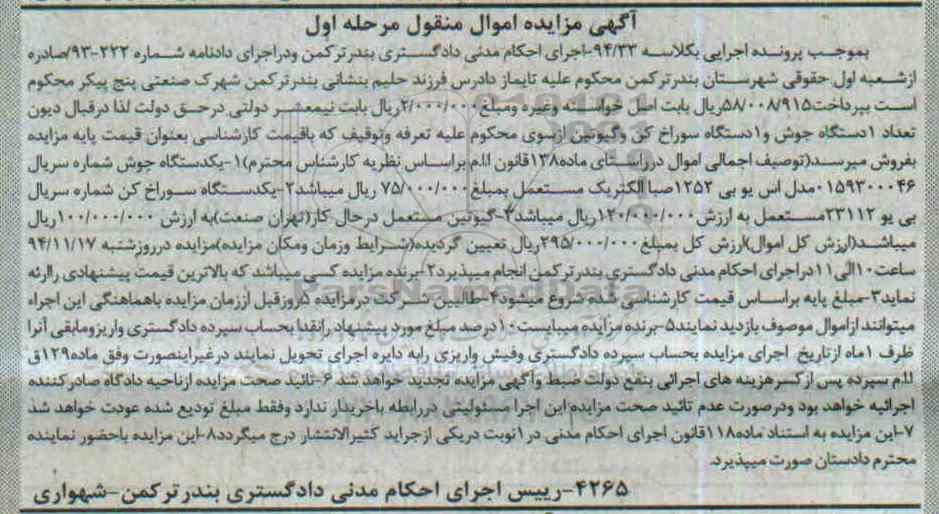 آگهی مزایده اموال منقول مرحله اول
بموجب پرونده اجرایی بکلاسه ۹۴/۳۳-اجرای احکام مدنی دادگستری بندرترکمن ودراجرای دادنامه شماره ۲۲۲-۹۳/صادره
ازشعبه اول حقوقی شهرستان بندرترکمن محکوم علیه تایماز دادرس فرزند حلیم بنشانی بندرترکمن شهرک صنعتی پنج پیکر محکوم
است بپرداخت۵۸/۰۰۸/۹۱۵ریال بابت اصل خواسته وغیره ومبلغ۲/۰۰۰/۰۰۰ریال بابت نیمعشر دولتی درحق دولت لذا درقبال دیون
تعداد ۱دستگاه جوش و۱دستگاه سوراخ کن وگیوتین ازسوی محکوم علیه تعرفه وتوقیف که باقیمت کارشناسی بعنوان قیمت پایه مزایده
بفروش میرسد(توصیف اجمالی اموال درراستای ماده۱۳۸قانون ا.ا.م براساس نظریه کارشناس محترم)۱-یکدستگاه جوش شماره سریال
۰۱۵۹۳۰۰۰۴۶مدل اس یو بی ۱۲۵۲صبا الکتریک مستعمل بمبلغ۷۵/۰۰۰/۰۰۰ ریال میباشد۲-یکدستگاه سوراخ کن شماره سریال
بی یو ۲۳۱۱۲مستعمل به ارزش۱۲۰/۰۰۰/۰۰۰ریال میباشد۳-گیوتین مستعمل درحال کار(تهران صنعت)به ارزش ۱۰۰/۰۰۰/۰۰۰ریال
میباشد(ارزش کل اموال)ارزش کل بمبلغ۲۹۵/۰۰۰/۰۰۰ریال تعیین گردیده(شرایط وزمان ومکان مزایده)مزایده درروزشنبه ۹۴/۱۱/۱۷
ساعت۱۰الی۱۱دراجرای احکام مدنی دادگستری بندرترکمن انجام میپذیرد۲-برنده مزایده کسی میباشد که بالاترین قیمت پیشنهادی راارئه
نماید۳-مبلغ پایه براساس قیمت کارشناسی شده شروع میشود۴-طالبین شرکت درمزایده ۵روزقبل اززمان مزایده باهماهنگی این اجراء
میتوانند ازاموال موصوف بازدید نمایند۵-برنده مزایده میبایست۱۰درصد مبلغ مورد پیشنهاد رانقدا بحساب سپرده دادگستری واریزومابقی آنرا
ظرف ۱ماه ازتاریخ اجرای مزایده بحساب سپرده دادگستری وفیش واریزی رابه دایره اجرای تحویل نمایند درغیراینصورت وفق ماده۱۲۹ق
ا.ا.م سپرده پس ازکسرهزینه های اجرائی بنفع دولت ضبط وآگهی مزایده تجدید خواهد شد ۶-تائید صحت مزایده ازناحیه دادگاه صادرکننده
اجرائیه خواهد بود ودرصورت عدم تائید صحت مزایده این اجرا مسئولیتی دررابطه باخریدار ندارد وفقط مبلغ تودیع شده عودت خواهد شد
۷-این مزایده به استناد ماده۱۱۸قانون اجرای احکام مدنی در۱نوبت دریکی ازجراید کثیرالانتشار درج میگردد۸-این مزایده باحضور نماینده
محترم دادستان صورت میپذیرد.
۴۲۶۵-رییس اجرای احکام مدنی دادگستری بندرترکمن-شهواری
ParsNamadData